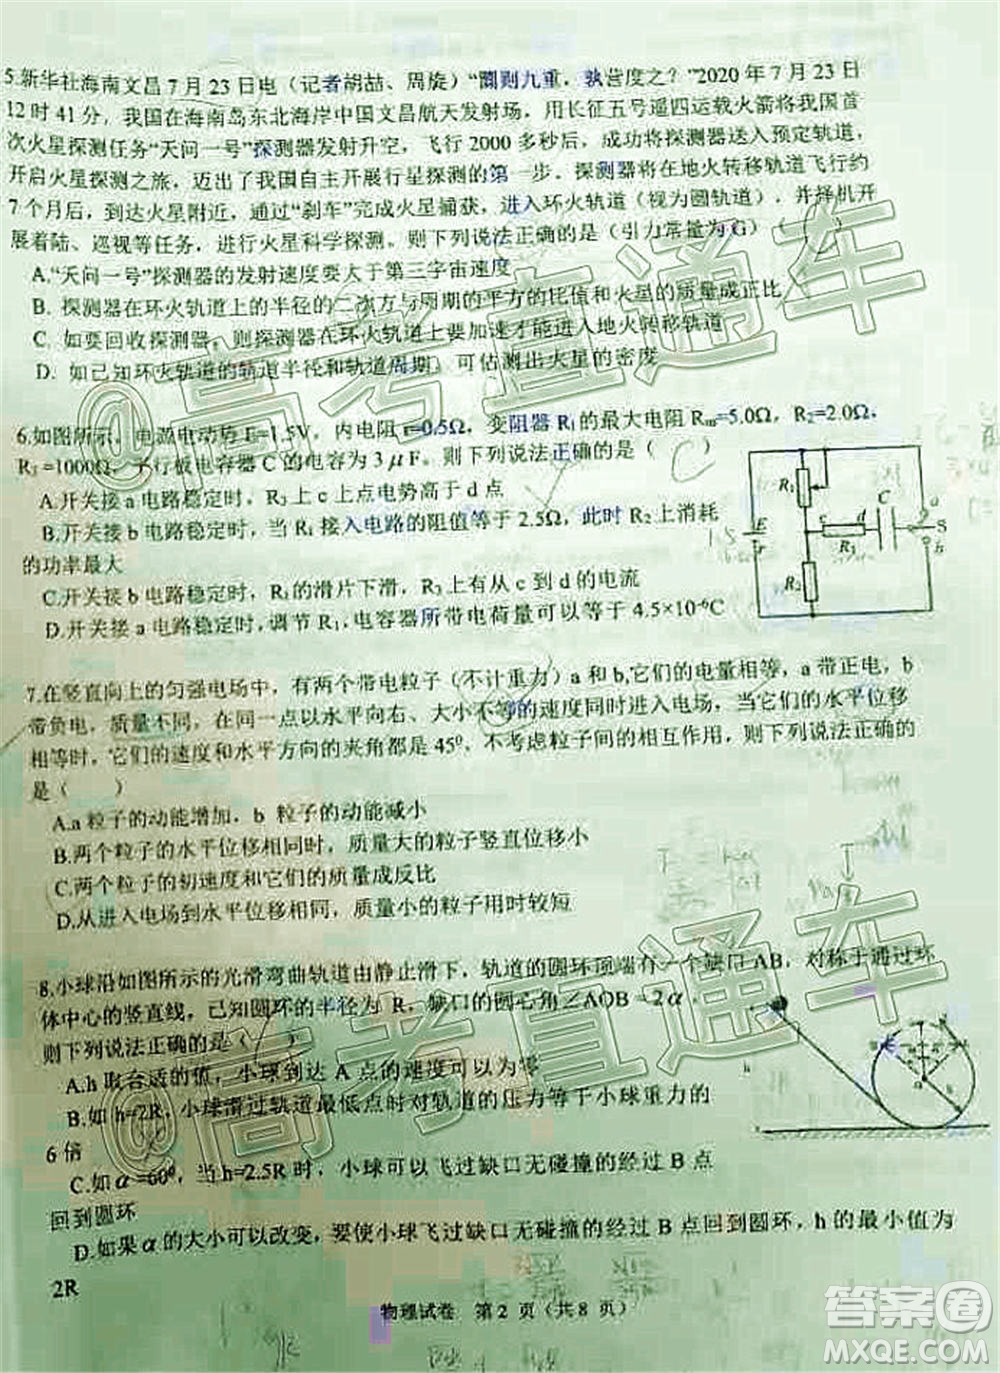 5.新华社海南文昌7月23日电（记者胡喆、周旋）“圜则九重，孰营度之？”2020年7月23日
12时41分，我国在海南岛东北海岸中国文昌航天发射场，用长征五号遥四运载火箭将我国首
次火星探测任务“天问一号”探测器发射升空，飞行2000多秒后，成功将探测器送入预定轨道，
开启火星探测之旅，迈出了我国自主开展行星探测的第一步。探测器将在地火转移轨道飞行约
7个月后，到达火星附近，通过“刹车”完成火星捕获，进入环火轨道（视为圆轨道），并择机开
展着陆、巡视等任务，进行火星科学探测。则下列说法正确的是（引力常量为G）（ ）
A.“天问一号”探测器的发射速度要大于第三宇宙速度
B. 探测器在环火轨道上的半径的二次方与周期的平方的比值和火星的质量成正比
C. 如要回收探测器，探测器在环火轨道只要加速才能进入地火转移轨道
D. 如已知环火轨道的轨道半径和轨道周期，可估测出火星的密度
6.如图所示，电源电动势E=1.5V，内电阻r=0.5Ω，变阻器R₁的最大电阻Rₘ=5.0Ω，R₂=2.0Ω，
R₃=1000Ω，平行板电容器C的电容为3μF。则下列说法正确的是（ C ）
A.开关接a电路稳定时，R₃上c上点电势高于d点
B.开关接b电路稳定时，当R₁接入电路的阻值等于2.5Ω，此时R₂上消耗
的功率最大
C.开关接b电路稳定时，R₁的滑片下滑，R₃上有从c到d的电流
D.开关接a电路稳定时，调节R₁,电容器所带电荷量可以等于4.5×10⁻⁶C
R₁ C a c d S E r R₃ b R₂
7.在竖直向上的匀强电场中，有两个带电粒子（不计重力）a和b,它们的电量相等，a带正电，b
带负电，质量不同，在同一点以水平向右、大小不等的速度同时进入电场，当它们的水平位移
相等时，它们的速度和水平方向的夹角都是45⁰，不考虑粒子间的相互作用，则下列说法正确的
是（ ）
A.a粒子的动能增加，b 粒子的动能减小
B.两个粒子的水平位移相同时，质量大的粒子竖直位移小
C.两个粒子的初速度和它们的质量成反比
D.从进入电场到水平位移相同，质量小的粒子用时较短
8.小球沿如图所示的光滑弯曲轨道由静止滑下，轨道的圆环顶端有一个缺口AB，对称于通过环
体中心的竖直线，已知圆环的半径为 R，缺口的圆心角∠AOB=2α，
则下列说法正确的是（ ）
A.h取合适的值，小球到达 A 点的速度可以为零
B.如h=2R，小球滑过轨道最低点时对轨道的压力等于小球重力的
6倍
C.如α=60⁰，当h=2.5R时，小球可以飞过缺口无碰撞的经过 B 点
回到圆环
D.如果α的大小可以改变，要使小球飞过缺口无碰撞的经过B点回到圆环，h的最小值为
2R
物理试卷 第2 页（共8 页）
@高考直通车
@高考直通车
答案圈
MXQE.COM